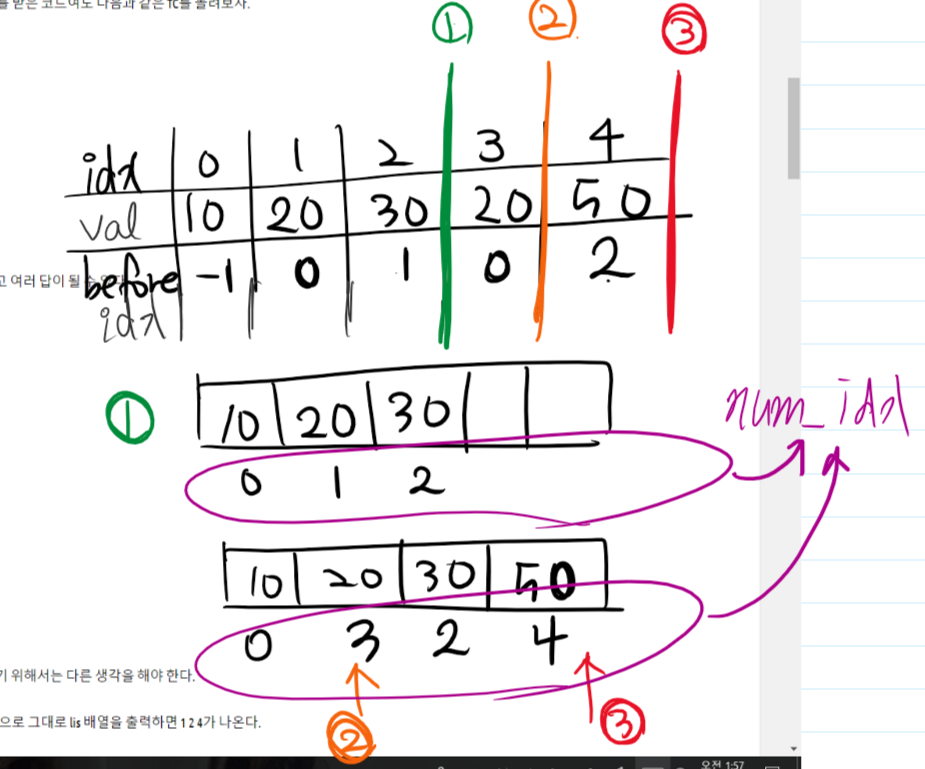 를 받은 코드여도 다음과 같은 tc를 돌려보자.
① ② ③
idx 0 1 2 3 4
val 10 20 30 20 50
고 여러 답이 될 수
before idx -1 0 1 0 2
① 10 20 30
num_idx
0 1 2
10 20 30 50
0 3 2 4
기 위해서는 다른 생각을 해야 한다.
② ③
으로 그대로 lis 배열을 출력하면 1 2 4가 나온다.
오전 1:57